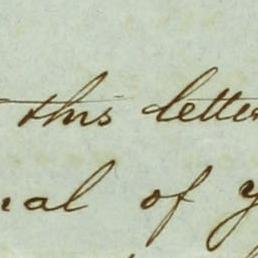 this lette
al of y